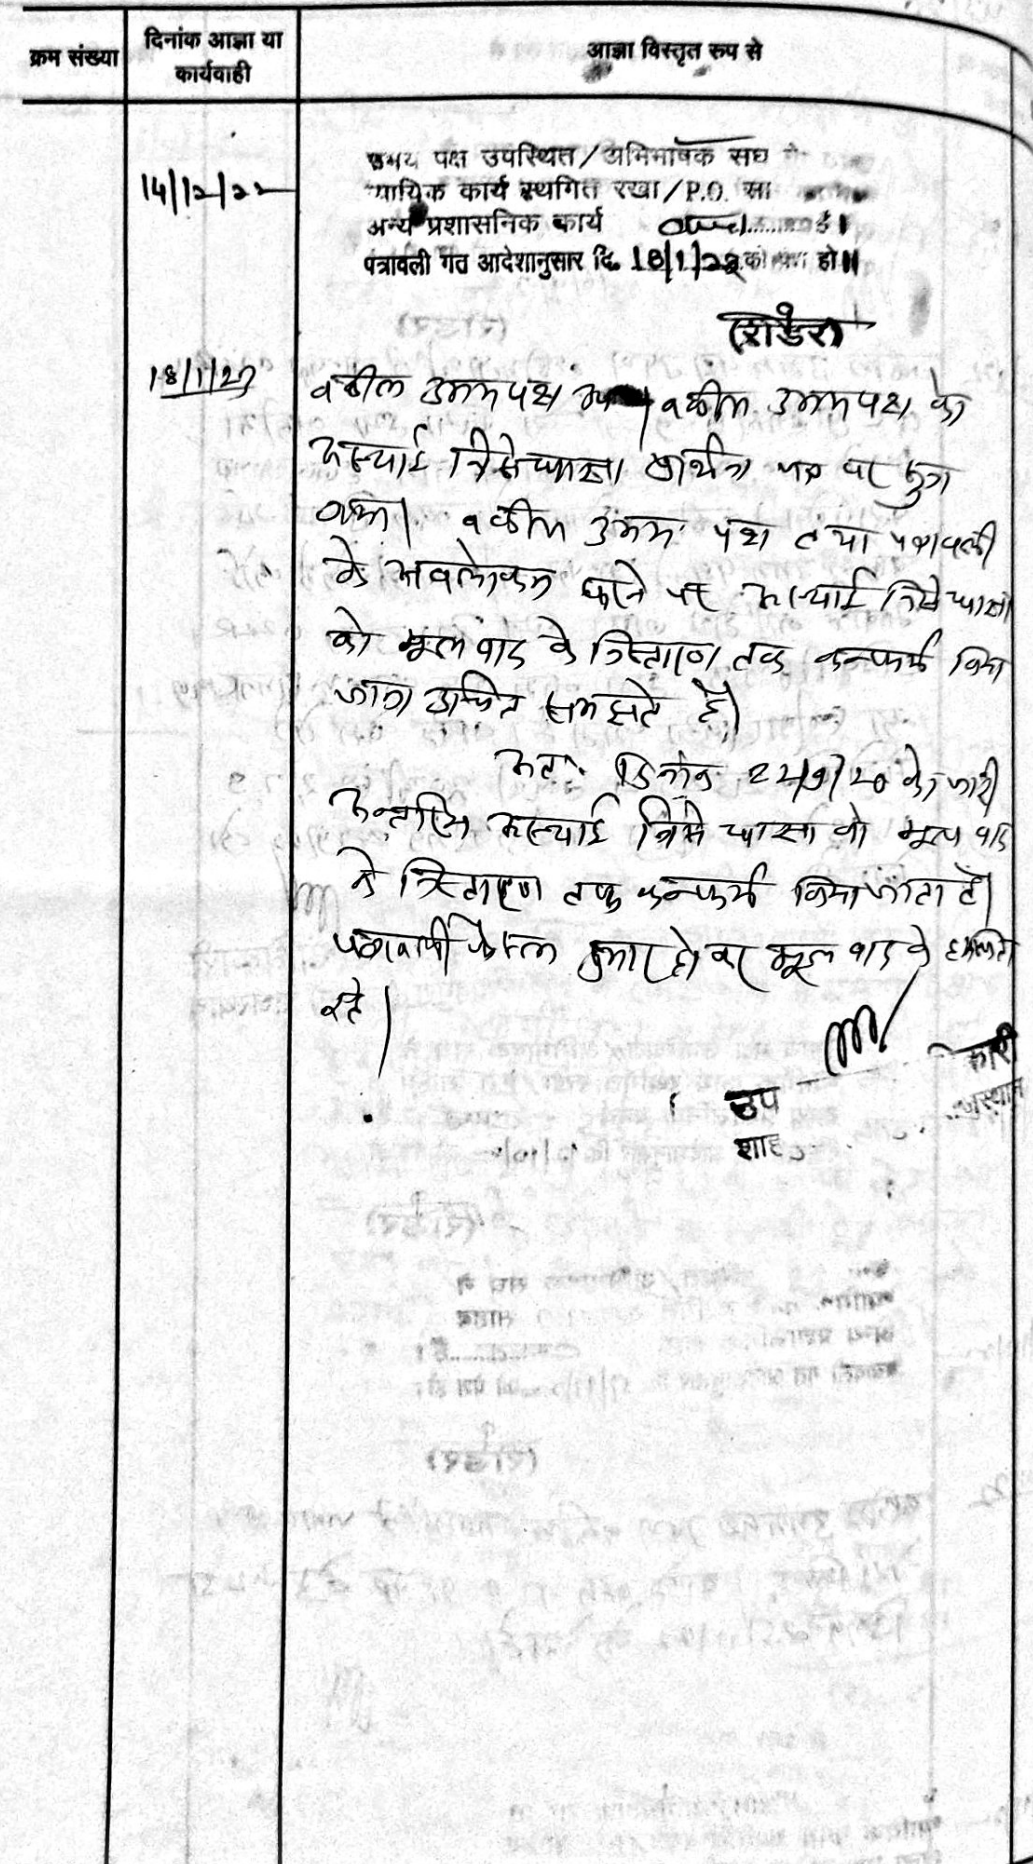 क्रम संख्या
दिनांक आज्ञा या
कार्यवाही
आज्ञा विस्तृत रूप से
14/12/22
उभय पक्ष उपस्थित/अभिभाषक संघ ने
न्यायिक कार्य स्थगित रखा/P.O. सा
अन्य प्रशासनिक कार्य
पत्रावली गत आदेशानुसार दि. 18/1/23 को पेश हो॥
(रीडर)
18/1/23
वकील उभयपक्ष वकील उभयपक्ष को
अस्थाई निषेधाज्ञा प्रार्थना पत्र पर सुना
गया। वकील उभय पक्ष तथा पत्रावली
के अवलोकन करने पर अस्थाई निषेधाज्ञा
को मूल वाद के निस्तारण तक कन्फर्म किया
जाना उचित समझते हैं।
अतः दिनांक 22/9/20 को जारी
अन्तरिम अस्थाई निषेधाज्ञा को मूल वाद
के निस्तारण तक कन्फर्म किया जाता है।
पत्रावली फैसल शुमार होकर मूल वाद के
रहे।
उप
शाह